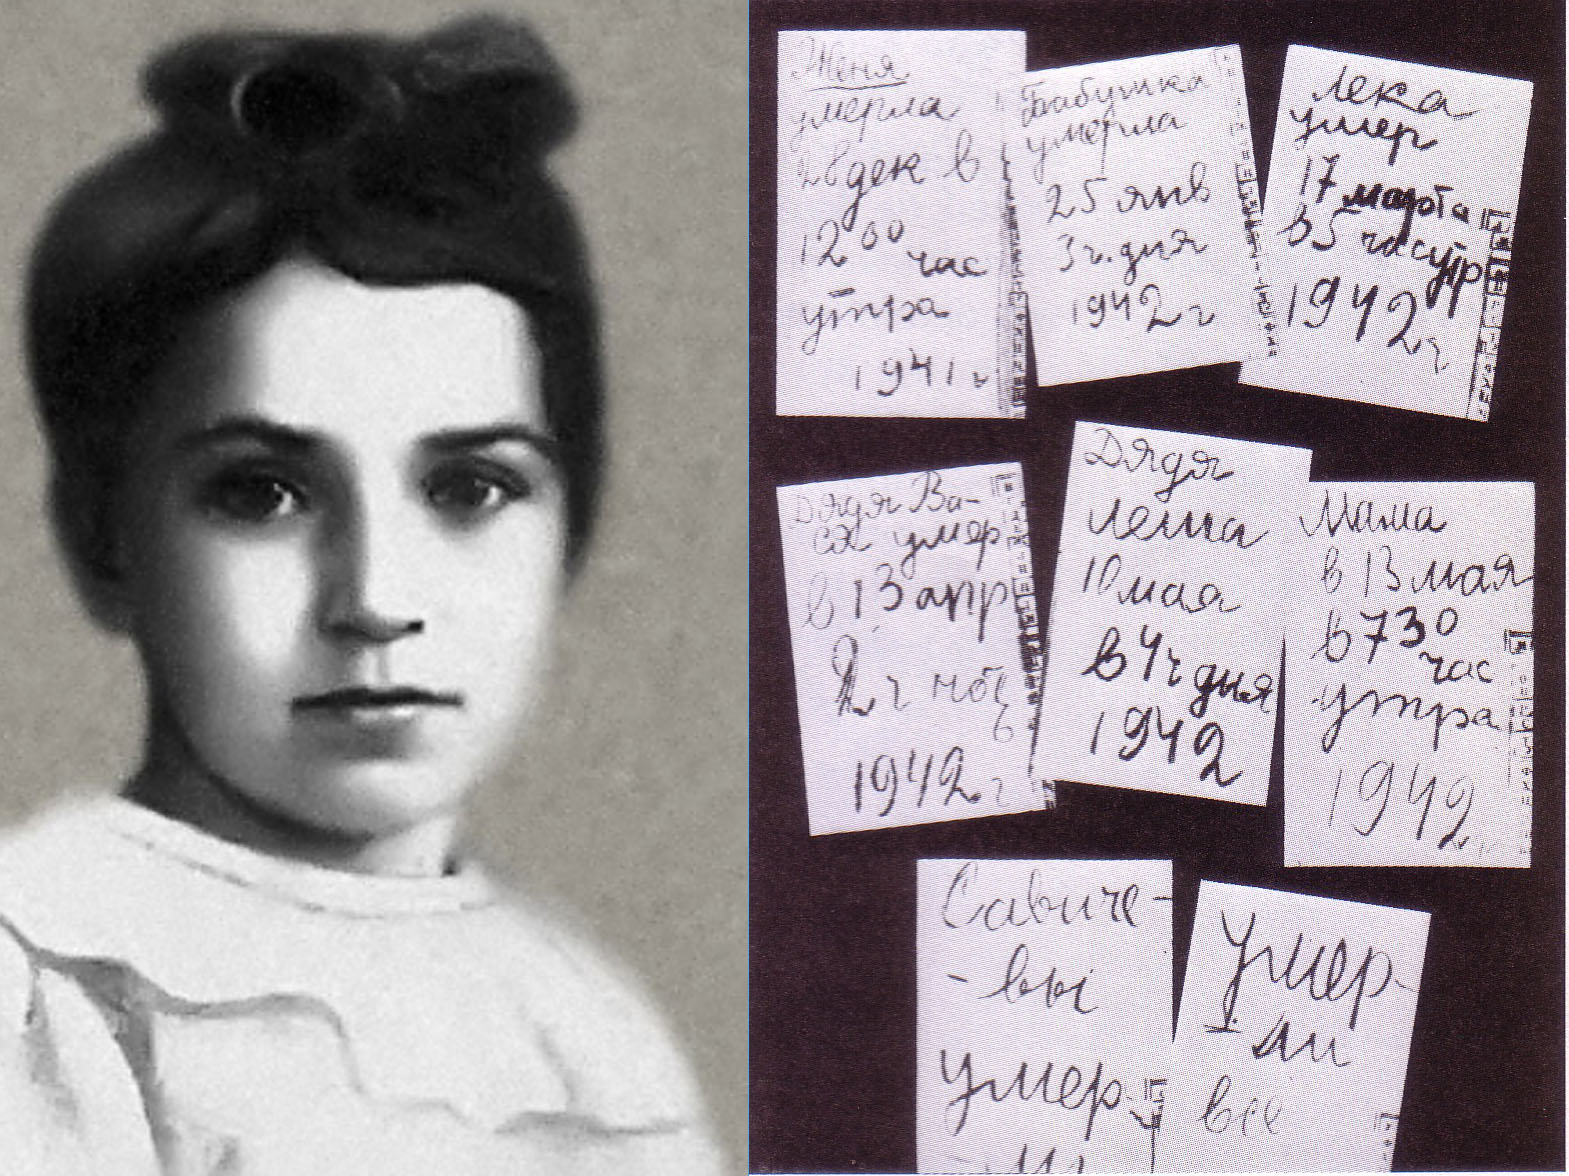 Женя
умерла
28 дек в
12 00 час
утра
1941 г
Бабушка
умерла
25 янв
3 ч. дня
1942 г
Лека
умер
17 марта
в 5 часутр
1942 г
Дядя Ва-
ся умер
в 13 апр
2 ч ночь
1942 г
Дядя
Леша
10 мая
в 4 ч дня
1942
Мама
в 13 мая
в 7 30
час
утра
1942
Савиче-
-вы
умер-
Умер-
ли
все